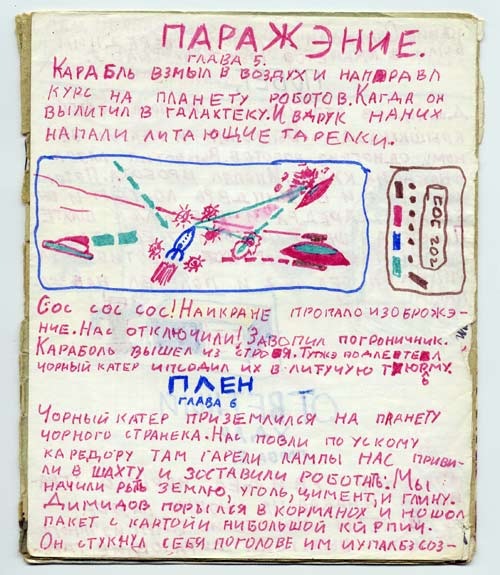 ПАРАЖЭНИЕ.
ГЛАВА 5.
КАРАБЛЬ ВЗМЫЛ В ВОЗДУХ И НАПРАВЛ
КУРС НА ПЛАНЕТУ РОБОТОВ. КАГДА ОН
ВЫЛИТИЛ В ГАЛАХТЕКУ. И ВДРУК НА НИХ
НАПАЛИ ЛИТАЮЩИЕ ТАРЕЛКИ.
СОС СОС СОС! НА ИКРАНЕ ПРОПАЛО ИЗОБРОЖЭ-
НИЕ. НАС ОТКЛЮЧИЛИ! ЗАВОПИЛ ПОГРОНИЧНИК.
КАРАБОЛЬ ВЫШЕЛ ИЗ СТРОЯ. ТУТЖЭ ПОДЛЕТЕЛ
ЧОРНЫЙ КАТЕР И ПСОДИЛ ИХ В ЛИТУЧУЮ ТЮРМУ.
ПЛЕН
ГЛАВА 6
ЧОРНЫЙ КАТЕР ПРИЗЕМЛИЛСЯ НА ПЛАНЕТУ
ЧОРНОГО СТРАНЕКА. НАС ПОВЛИ ПО УСКОМУ
КАРЕДОРУ ТАМ ГАРЕЛИ ЛАМПЫ НАС ПРИВИ-
ЛИ В ШАХТУ И ЗОСТАВИЛИ РОБОТАТЬ. МЫ
НАЧИЛИ РЫТЬ ЗЕМЛЮ, УГОЛЬ, ЦИМЕНТ, И ГЛИНУ.
ДИМИДОВ ПОРЫЛСЯ В КОРМАНОХ И НОШОЛ
ПАКЕТ С КАРТОЙ И НИБОЛЬШОЙ КИРПИЧ.
ОН СТУКНУЛ СЕБЯ ПОГОЛОВЕ ИМ И УПАЛ БЭСОЗ-